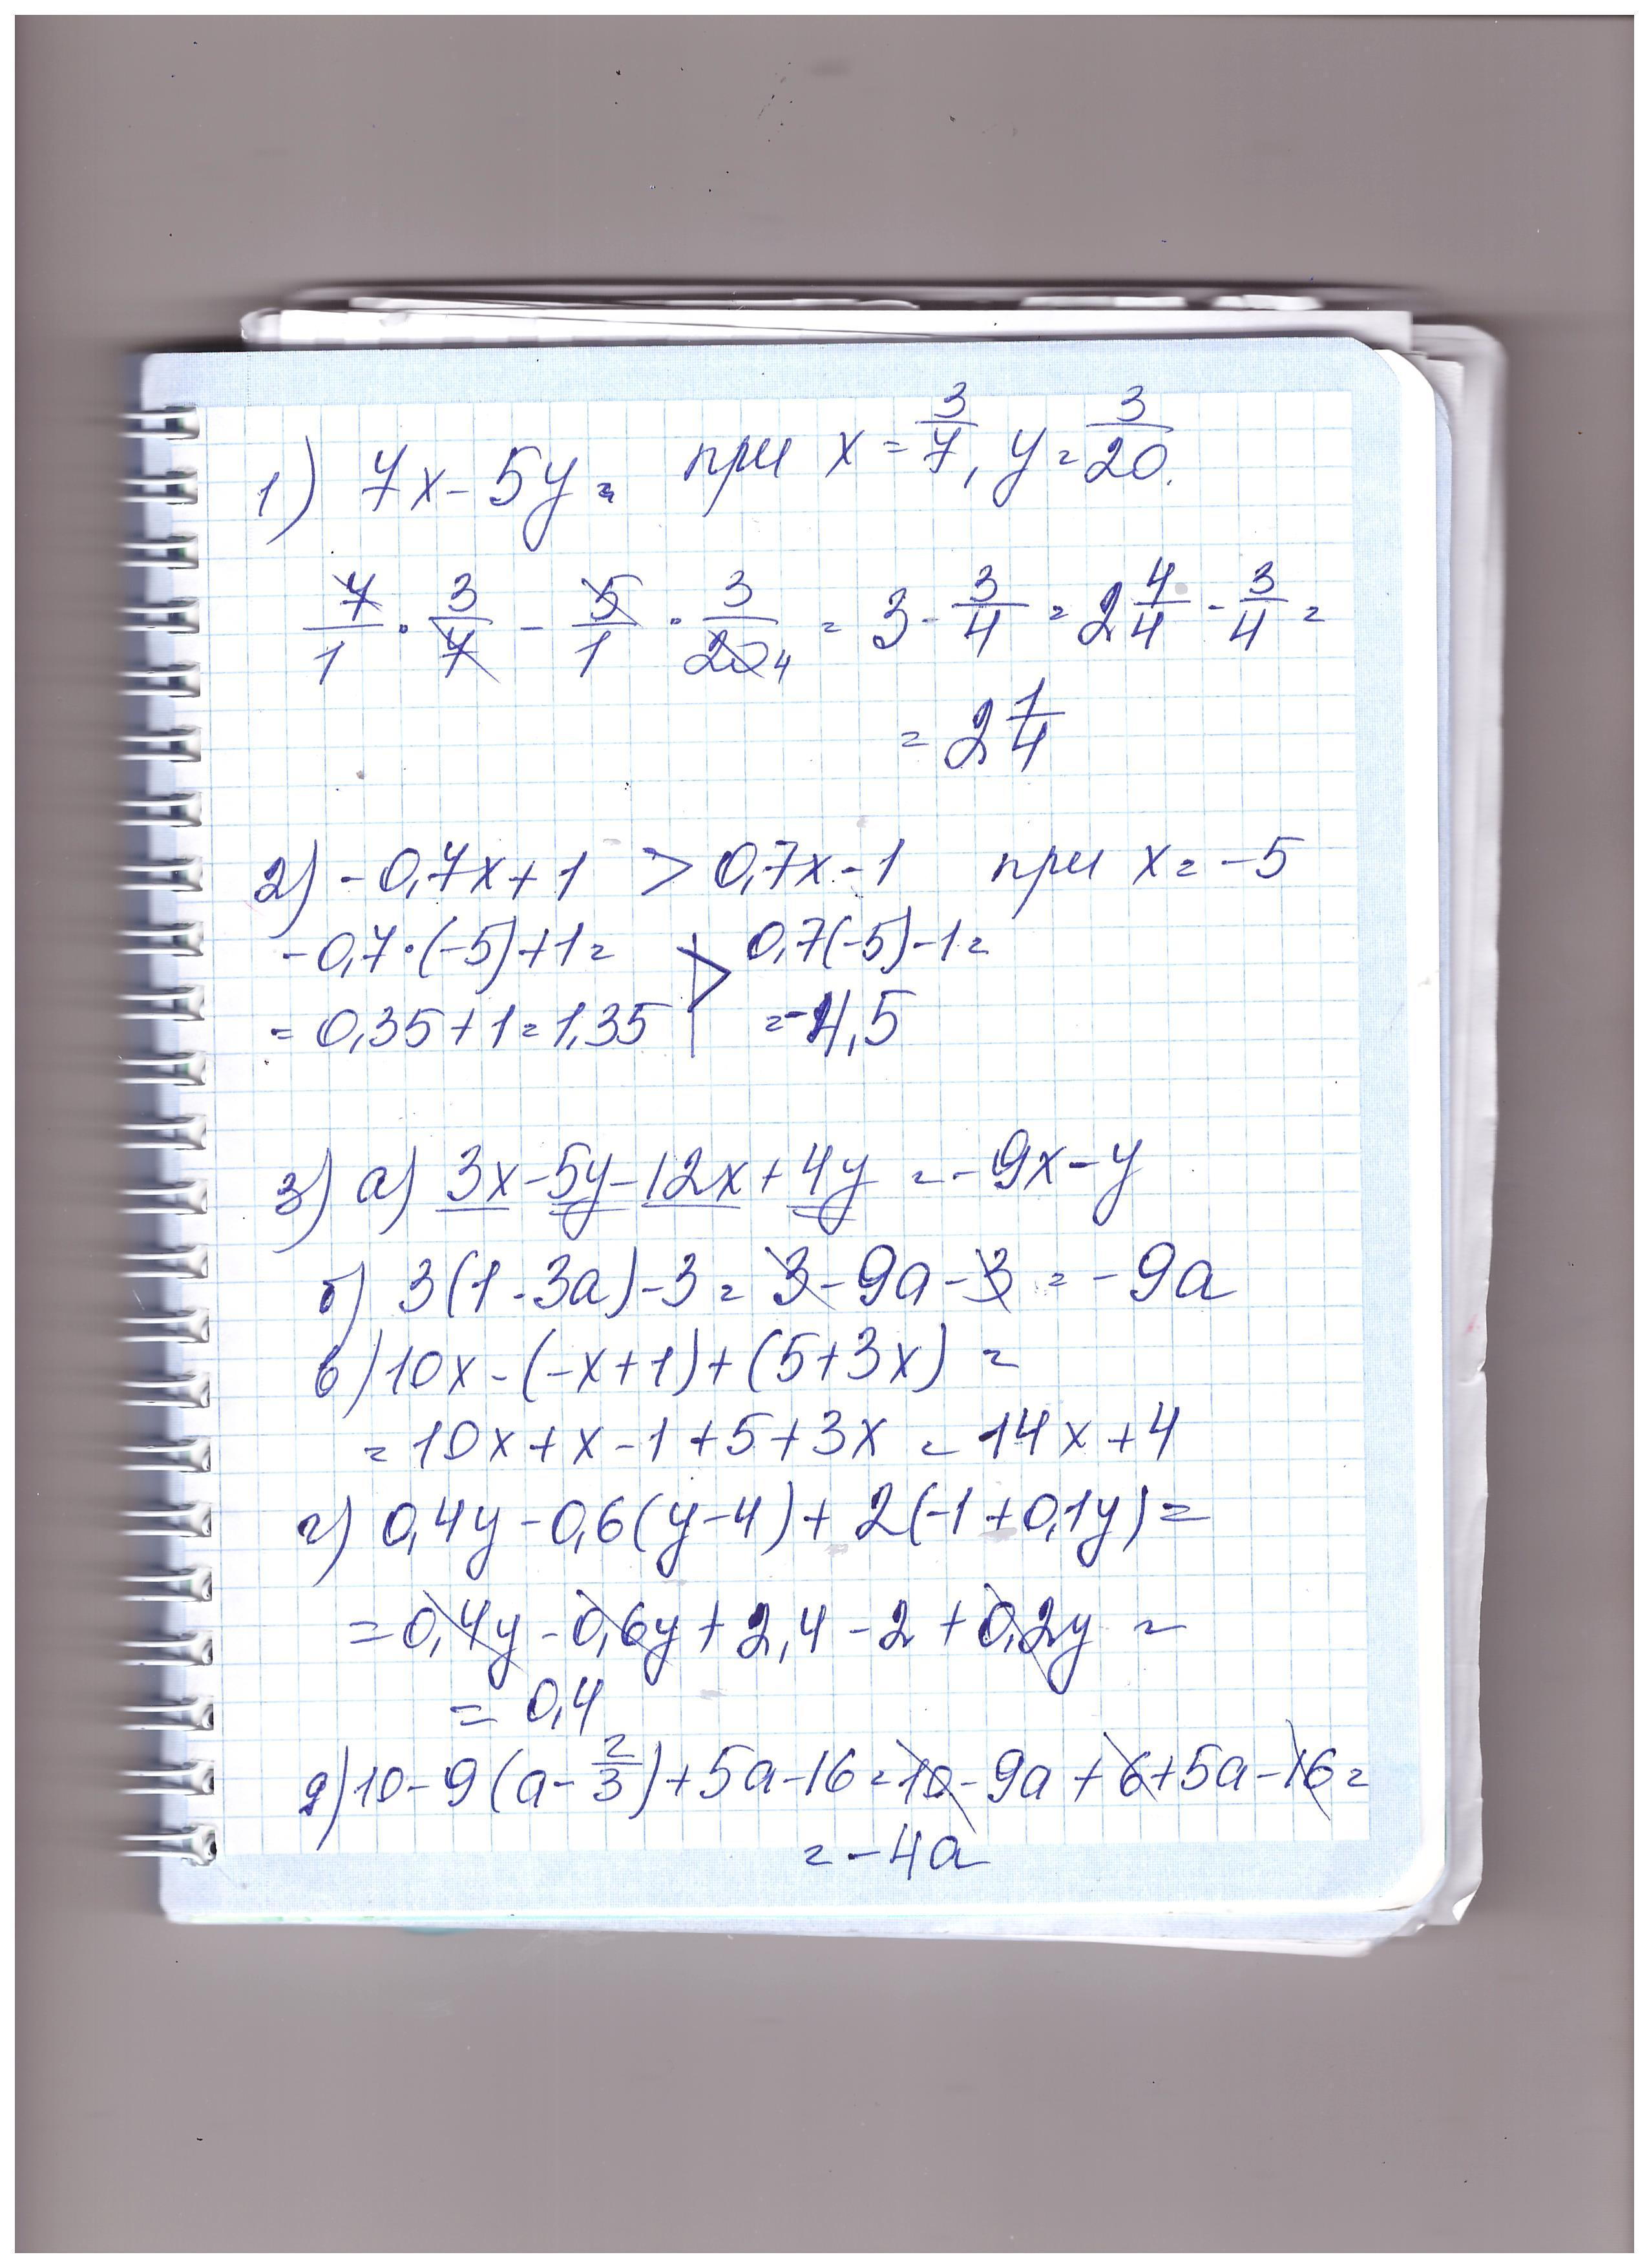 1) 7x - 5y = при x = 3/7, y = 3/20.
7/1 · 3/7 - 5/1 · 3/20 4 = 3 - 3/4 = 2 4/4 - 3/4 =
= 2 1/4
2) -0,7x + 1 > 0,7x - 1 при x = -5
-0,7·(-5)+1 = > 0,7(-5)-1 =
= 0,35+1 = 1,35 = -4,5
3) а) 3x - 5y - 12x + 4y = -9x - y
б) 3(1 - 3a) - 3 = 3 - 9a - 3 = -9a
в) 10x - (-x+1) + (5+3x) =
= 10x + x - 1 + 5 + 3x = 14x + 4
г) 0,4y - 0,6(y-4) + 2(-1+0,1y) =
= 0,4y - 0,6y + 2,4 - 2 + 0,2y =
= 0,4
д) 10 - 9(a - 2/3) + 5a - 16 = 10 - 9a + 6 + 5a - 16 =
= -4a